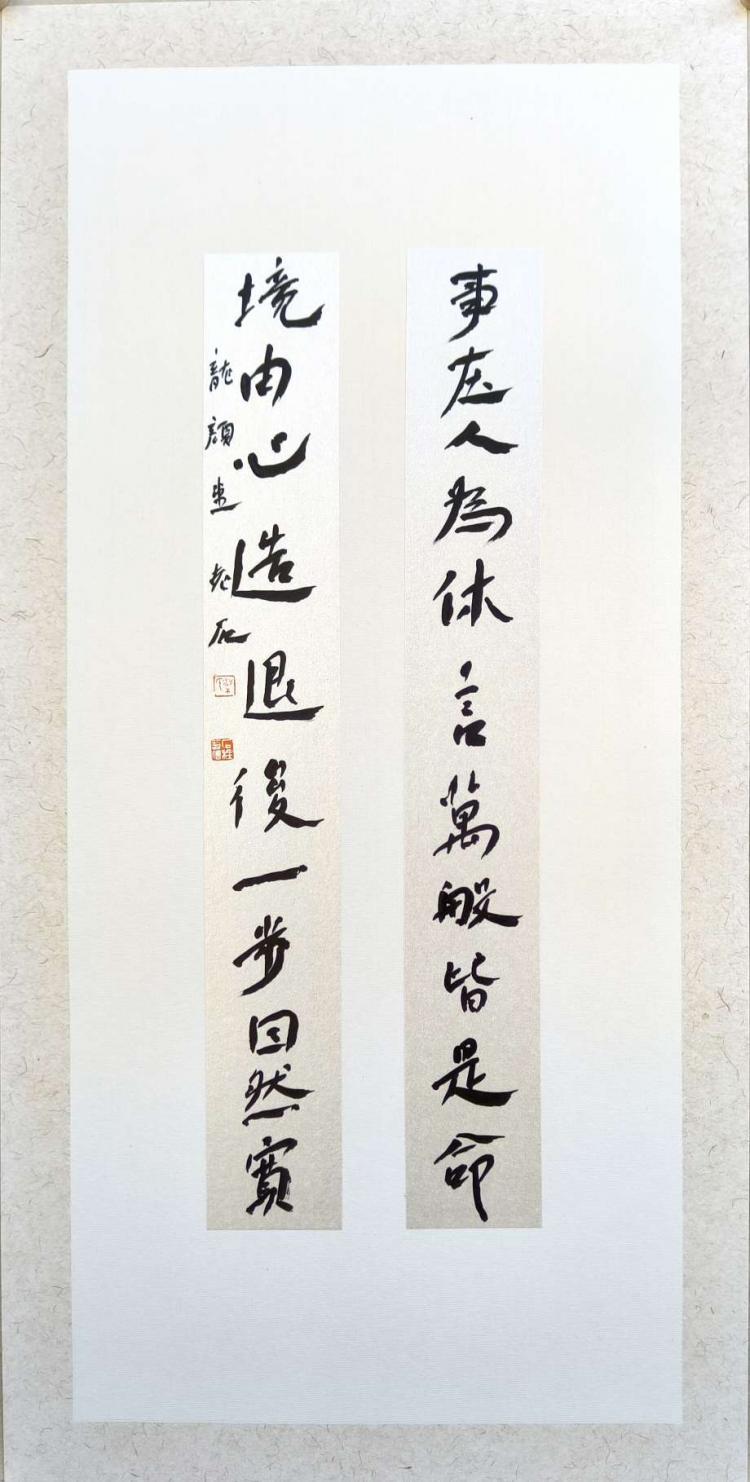 事在人為休言萬般皆是命
境由心造退後一步自然寬
龍顏書